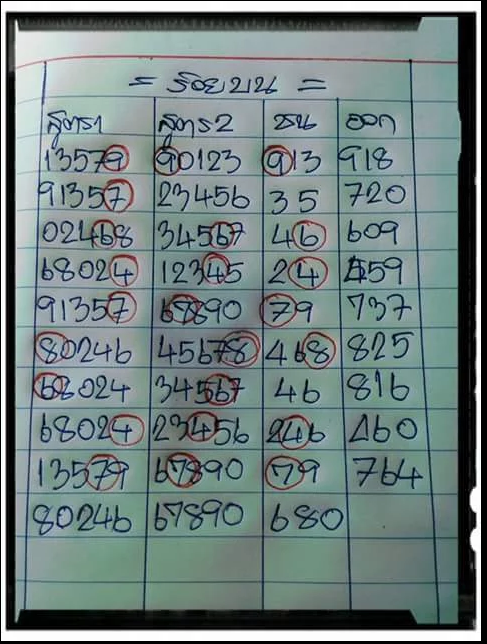 = ร้อยบน =
สูตร1 สูตร2 ชน ออก
13579 90123 913 918
91357 23456 35 720
02468 34567 46 609
68024 12345 24 459
91357 67890 79 737
80246 45678 468 825
68024 34567 46 816
68024 23456 246 460
13579 67890 79 764
80246 67890 680